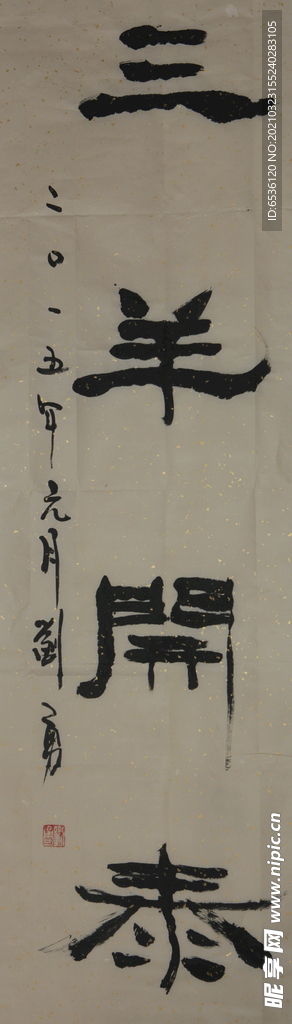 三羊開泰
二〇一五年元月劉勇
ID:6536120 NO:20210323155240283105
昵享网 www.nipic.cn